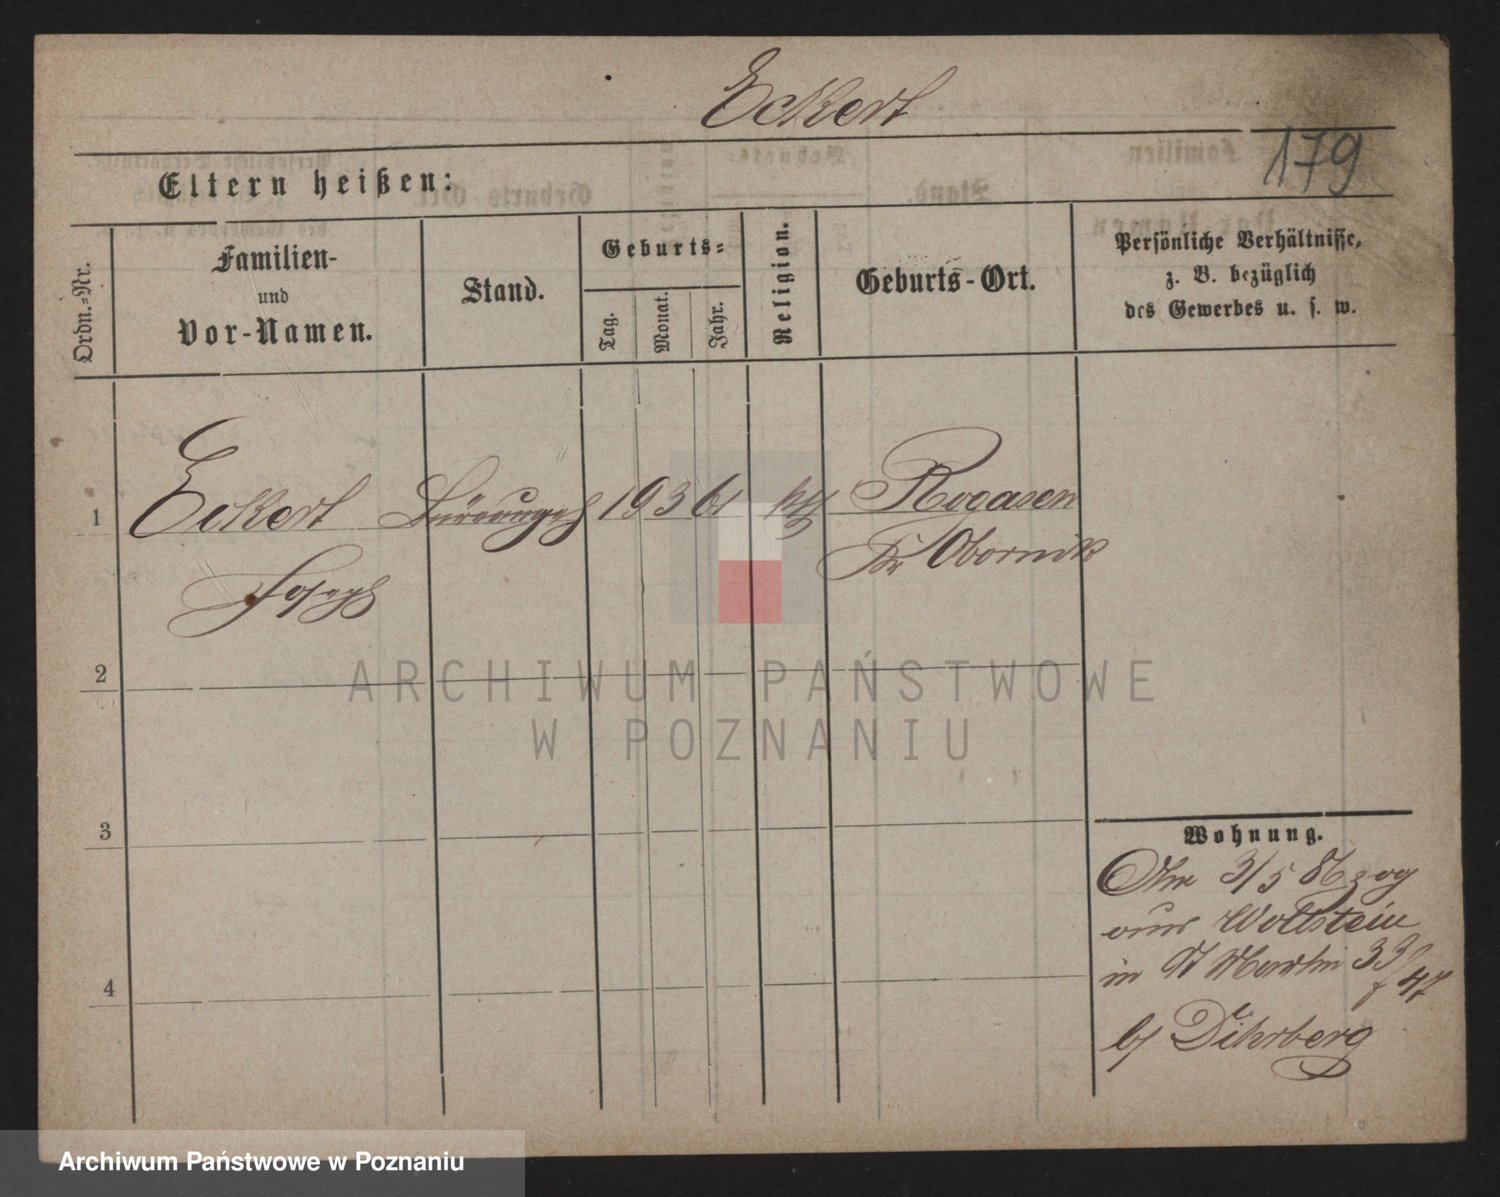 Eckert
179
Eltern heißen:
Ordn.=Nr.
Familien-
und
Vor-Namen.
Stand.
Geburts=
Tag.
Monat.
Jahr.
Religion.
Geburts-Ort.
Persönliche Verhältnisse,
z. B. bezüglich
des Gewerbes u. s. w.
1
Eckert
19 3 61
Rogasen
Joseph
Kr Obornik
2
ARCHIWUM PAŃSTWOWE
W POZNANIU
3
4
Wohnung.
3/5
aus Wollstein
in St Martin 33
b/ Dihrberg
Archiwum Państwowe w Poznaniu